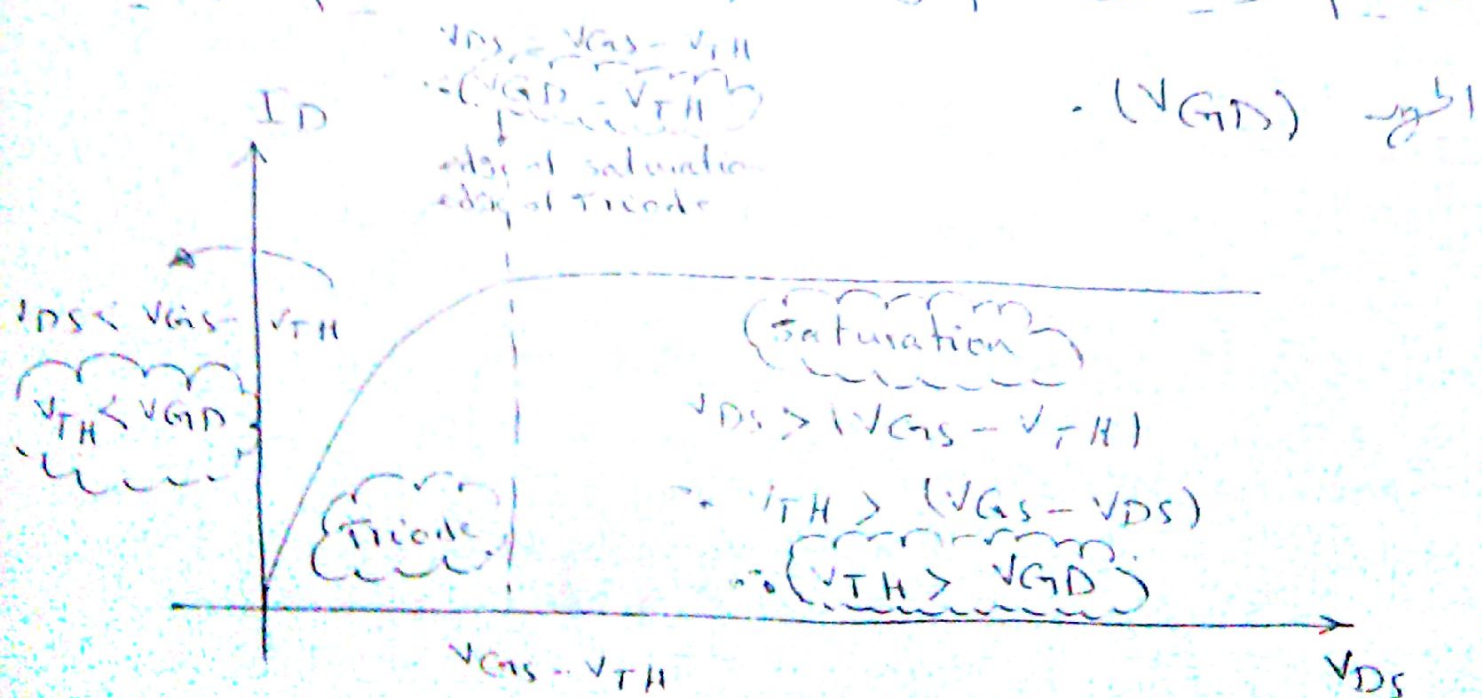 VDS = VGS - VTH
∴ (VGD = VTH)
ID
. (VGD)
edge of saturation
edge of Triode
VDS < VGS - VTH
VTH < VGD
Saturation
VDS > (VGS - VTH)
∴ VTH > (VGS - VDS)
Triode
∴ (VTH > VGD)
VGS - VTH
VDS